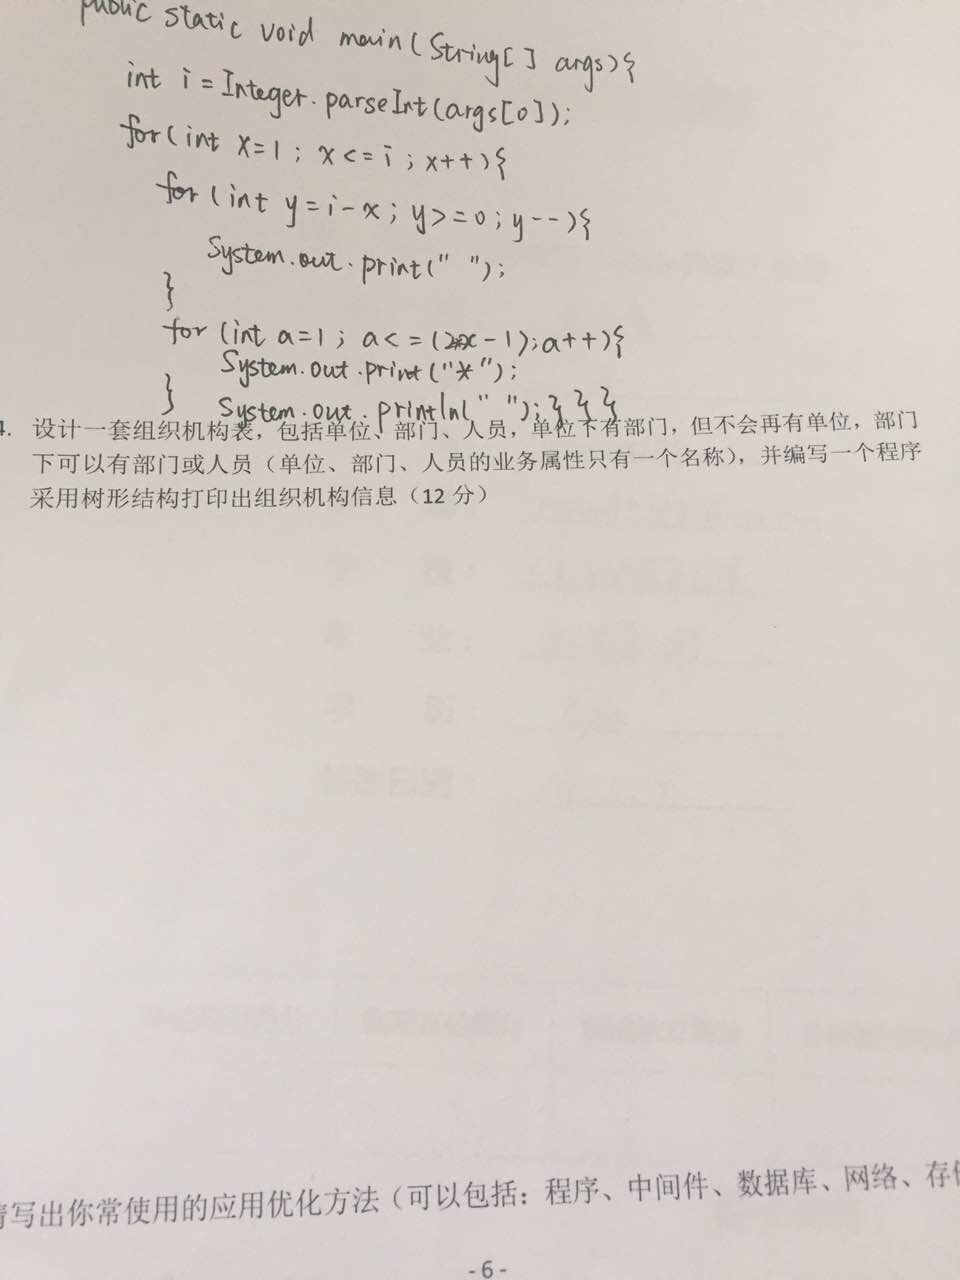 public static void main(String[] args){
int i=Integer.parseInt(args[0]);
for(int x=1; x<=i; x++){
for(int y=i-x; y>=0; y--){
System.out.print(" ");
}
for(int a=1; a<=(2*x-1);a++){
System.out.print("*");
} System.out.println(" ");}}}
4. 设计一套组织机构表，包括单位、部门、人员，单位下有部门，但不会再有单位，部门
下可以有部门或人员（单位、部门、人员的业务属性只有一个名称），并编写一个程序
采用树形结构打印出组织机构信息（12 分）
请写出你常使用的应用优化方法（可以包括：程序、中间件、数据库、网络、存储
-6-